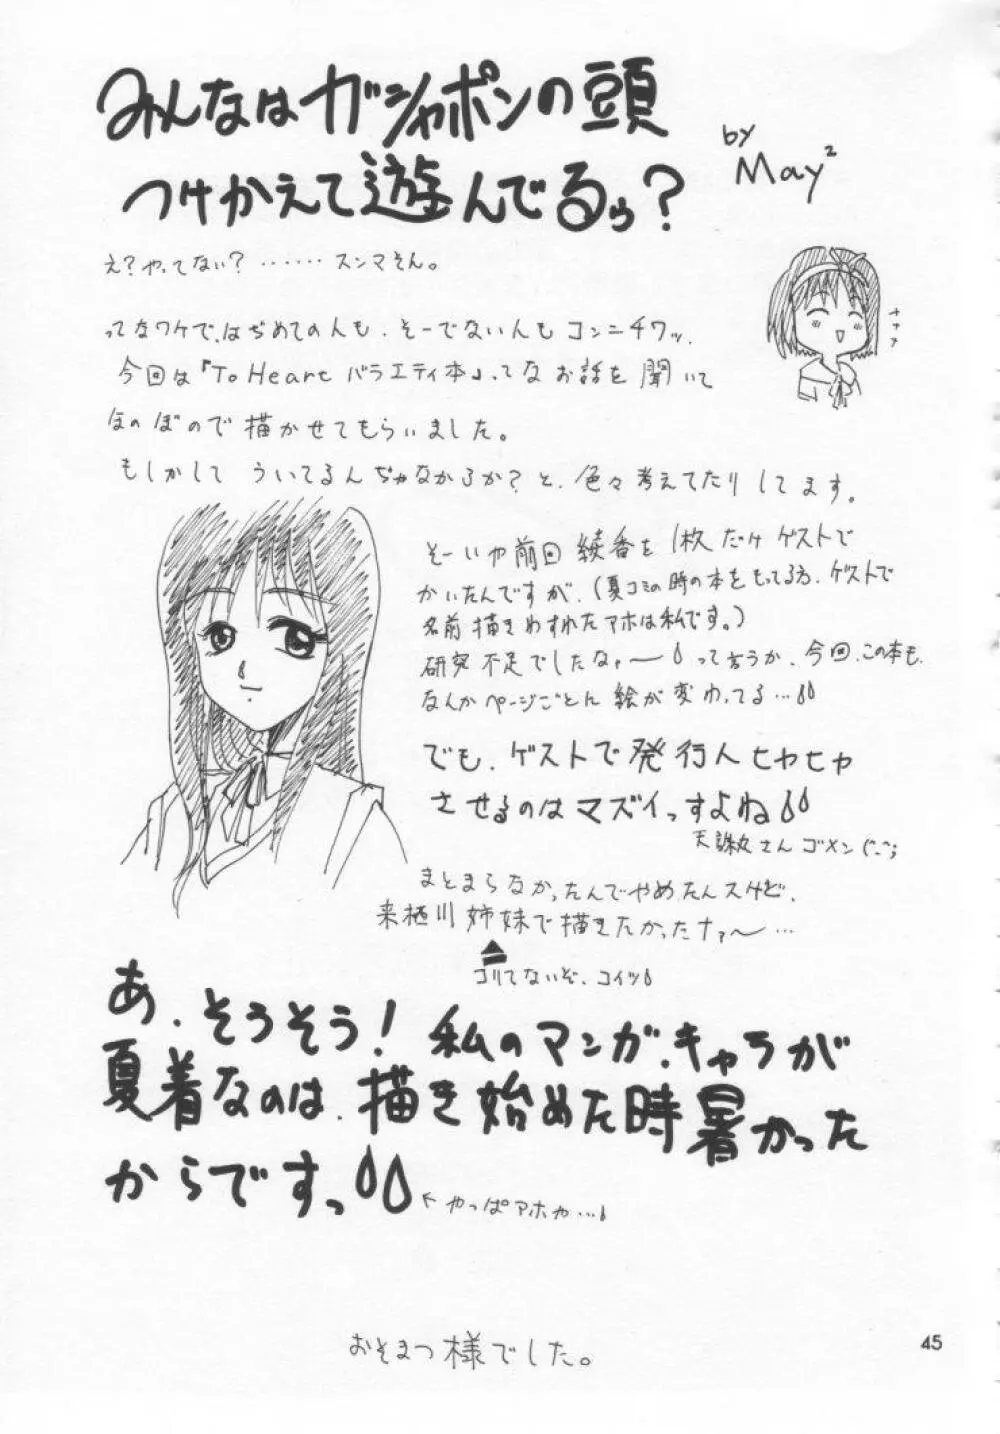 みんなはガシャポンの頭
つけかえて遊んでるぅ?
by
May²
え?やってない?……スンマそん。
ってなワケで、はぢめての人も、そーでない人もコンニチワッ、
今回は『To Heart バラエティ本』、ってなお話を聞いて
ほのぼので描かせてもらいました。
もしかして ういてるんぢゃなかろか?と、色々考えてたりしてます。
ナァァ
そーいや前回 綾香を1枚だけゲストで
かいたんですが、(夏コミの時の本をもってる方、ゲストで
名前描きわすれたアホは私です。)
研究不足でしたなァ〜 って言うか、今回、この本も、
なんかページごとに絵が変わってる…
でも、ゲストで発行人ヒヤヒヤ
させるのはマズイっすよね
天誅丸さんゴメン(^_^;
まとまらなかったんでやめたんスけど、
来栖川姉妹で描きたかったナァ〜…
コリてないぞ、コイツ
あ、そうそう!私のマンガ、キャラが
夏着なのは、描き始めた時暑かった
からですっ
←やっぱアホか…
おそまつ様でした。
45